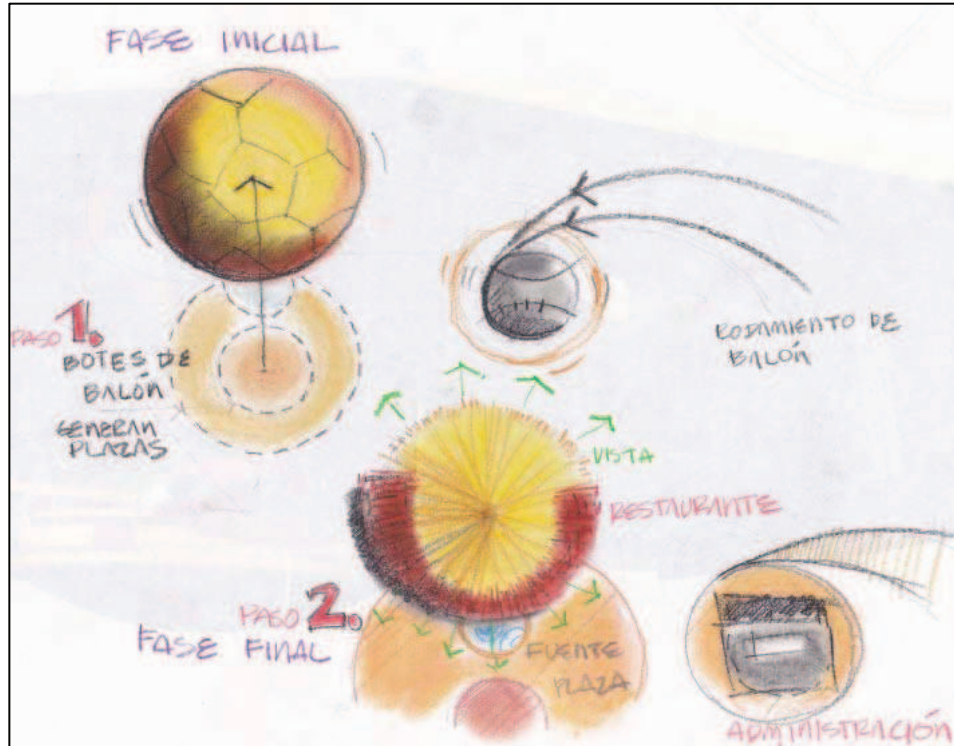 FASE INICIAL
PASO 1.
BOTES DE
BALÓN
GENERAN
PLAZAS
RODAMIENTO DE
BALÓN
VISTA
RESTAURANTE
PASO 2.
FASE FINAL
FUENTE
PLAZA
ADMINISTRACIÓN